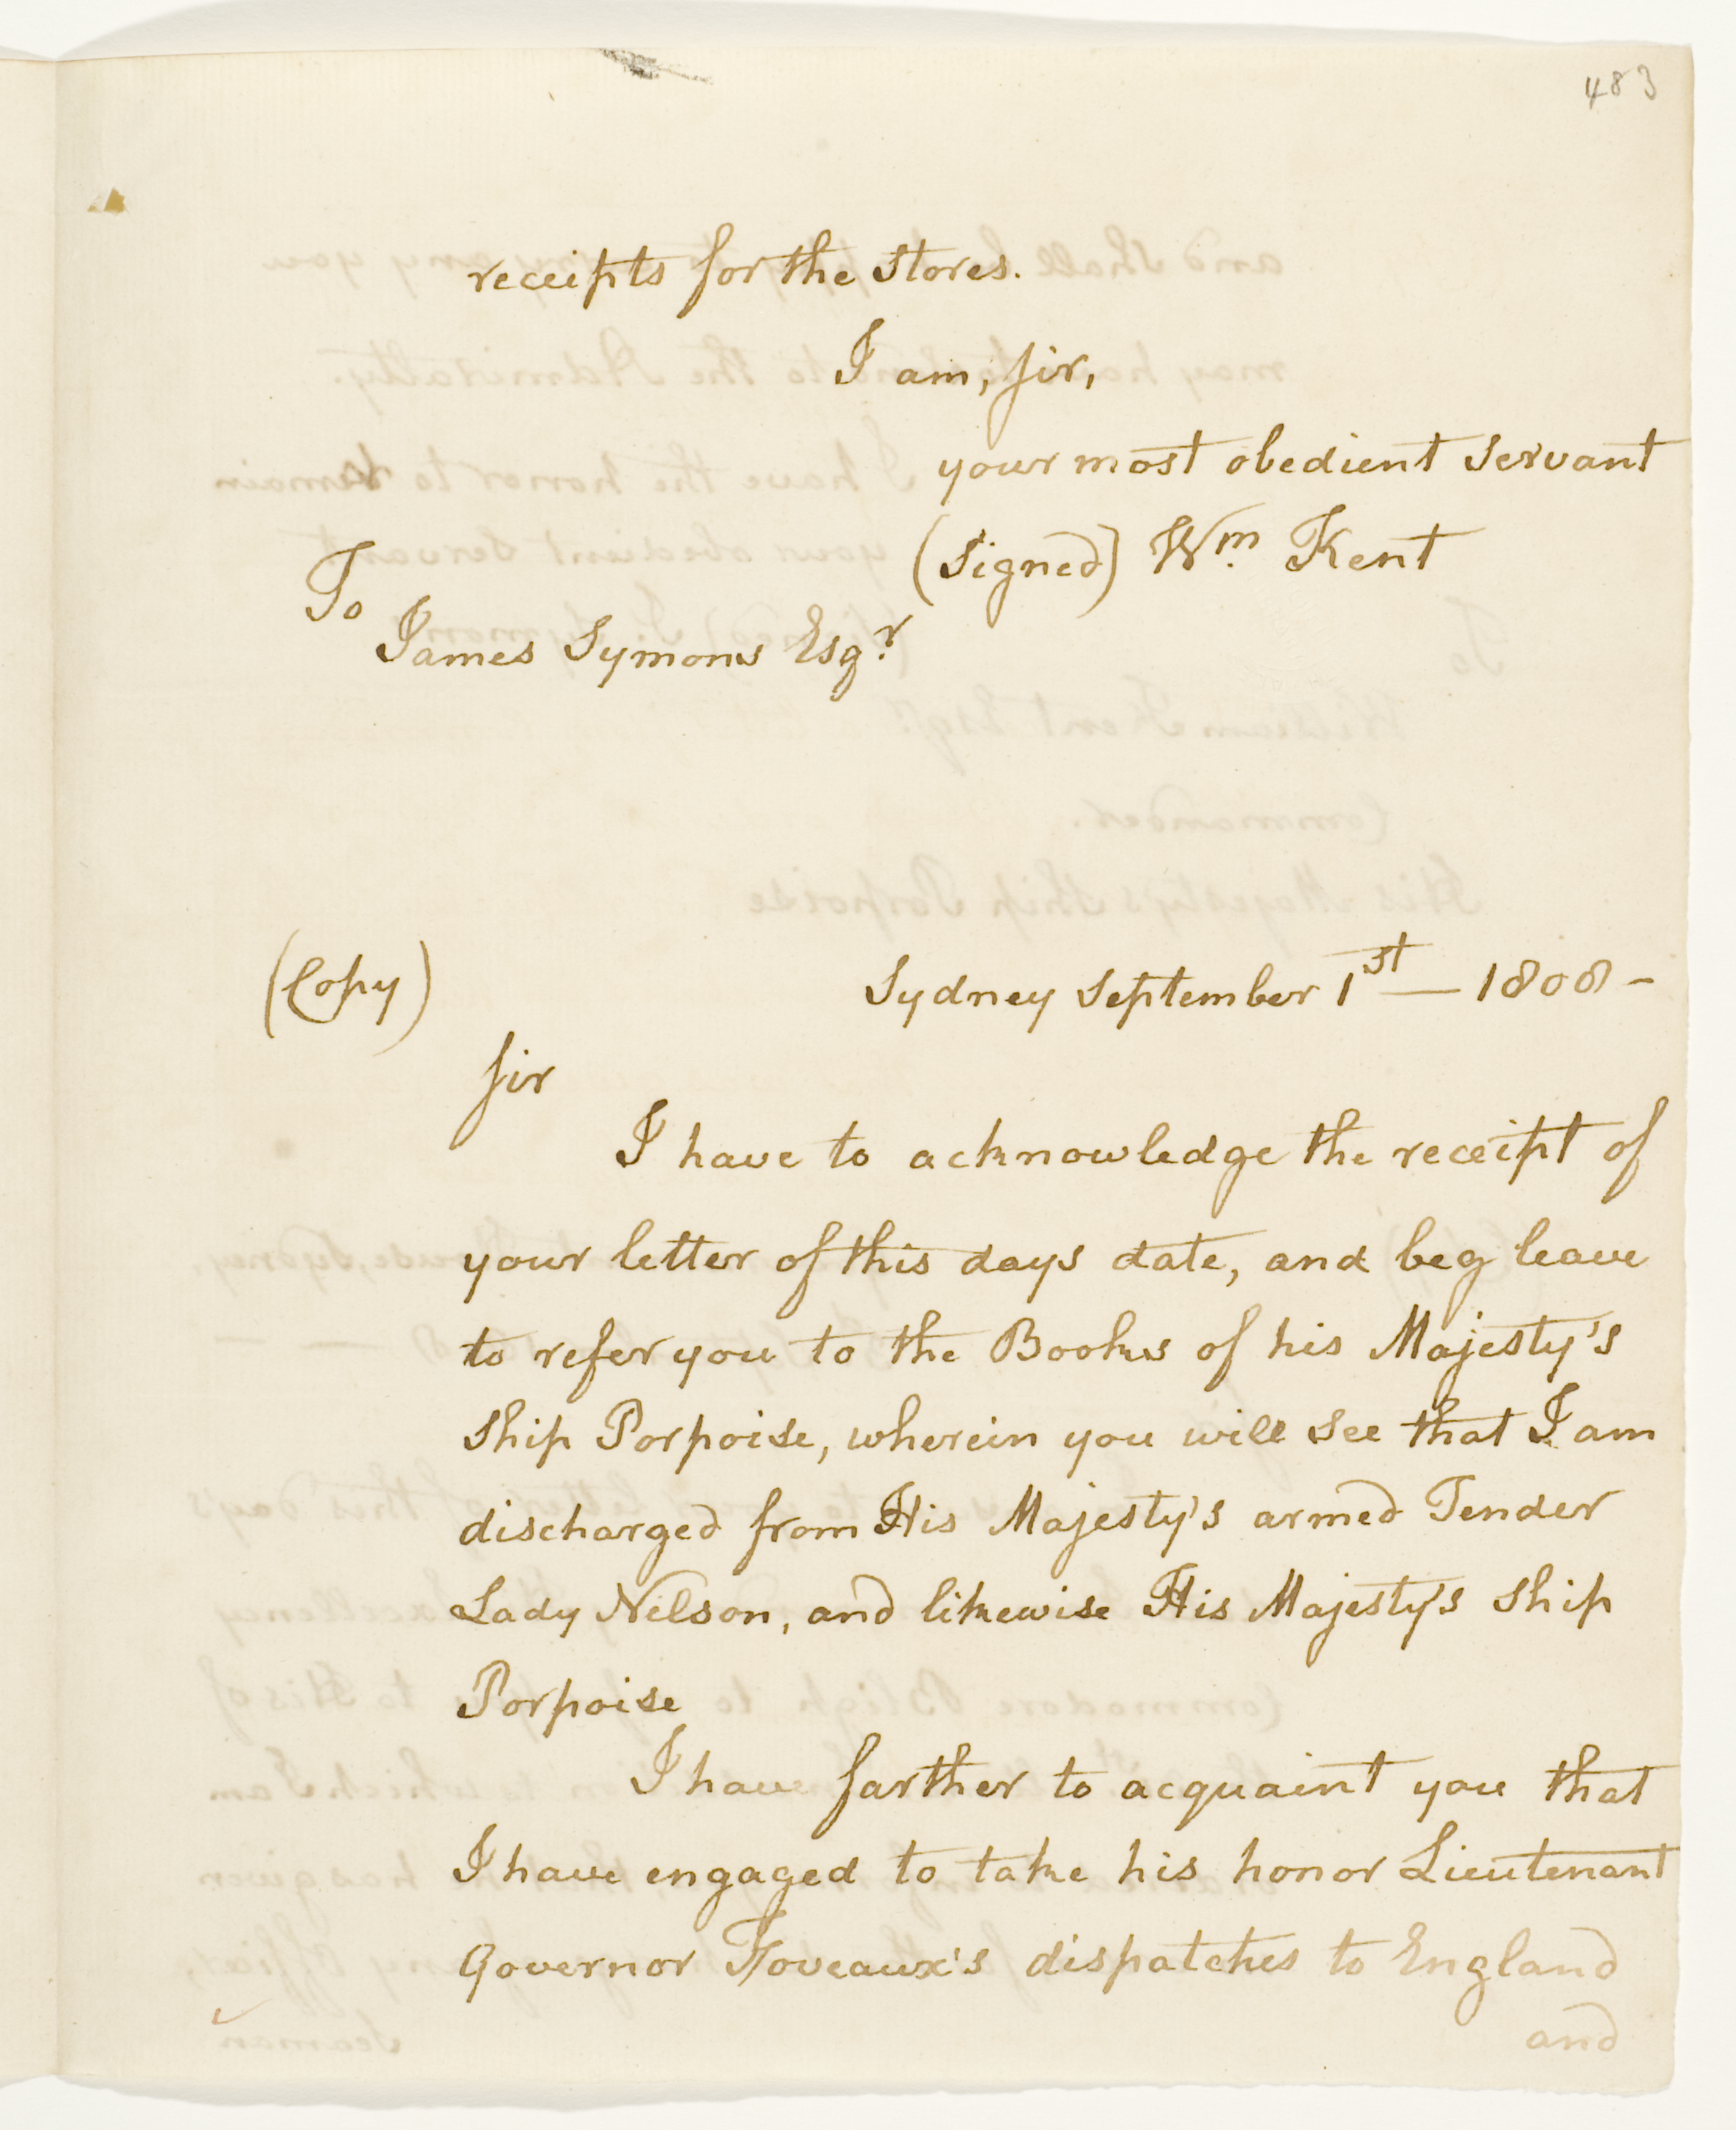 483
receipts for the Stores.
I am, Sir,
your most obedient Servant
(Signed) Wm. Kent
To
James Symons Esqr.
(Copy)
Sydney September 1st — 1808 -
Sir
I have to acknowledge the receipt of
your letter of this days date, and beg leave
to refer you to the Books of his Majesty's
Ship Porpoise, wherein you will see that I am
discharged from His Majesty's armed Tender
Lady Nelson, and likewise His Majesty's Ship
Porpoise
I have farther to acquaint you that
I have engaged to take his honor Lieutenant
Governor Foveaux's dispatches to England
and